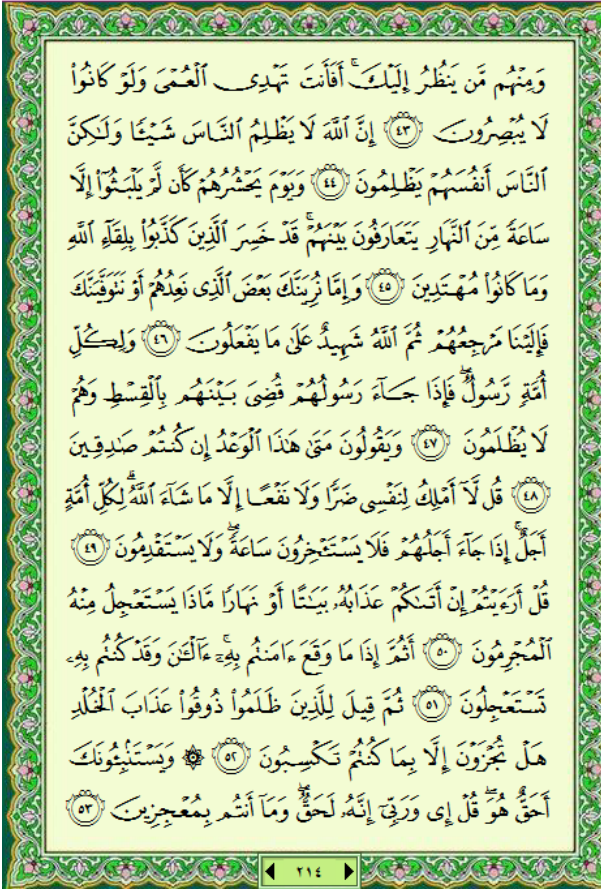 وَمِنْهُم مَّن يَنظُرُ إِلَيْكَ ۚ أَفَأَنتَ تَهْدِى الْعُمْىَ وَلَوْ كَانُوا۟
لَا يُبْصِرُونَ ﴿٤٣﴾ إِنَّ اللَّهَ لَا يَظْلِمُ النَّاسَ شَيْـًٔا وَلَـٰكِنَّ
النَّاسَ أَنفُسَهُمْ يَظْلِمُونَ ﴿٤٤﴾ وَيَوْمَ يَحْشُرُهُمْ كَأَن لَّمْ يَلْبَثُوٓا۟ إِلَّا
سَاعَةً مِّنَ النَّهَارِ يَتَعَارَفُونَ بَيْنَهُمْ ۚ قَدْ خَسِرَ الَّذِينَ كَذَّبُوا۟ بِلِقَآءِ اللَّهِ
وَمَا كَانُوا۟ مُهْتَدِينَ ﴿٤٥﴾ وَإِمَّا نُرِيَنَّكَ بَعْضَ الَّذِى نَعِدُهُمْ أَوْ نَتَوَفَّيَنَّكَ
فَإِلَيْنَا مَرْجِعُهُمْ ثُمَّ اللَّهُ شَهِيدٌ عَلَىٰ مَا يَفْعَلُونَ ﴿٤٦﴾ وَلِكُلِّ
أُمَّةٍ رَّسُولٌ ۖ فَإِذَا جَآءَ رَسُولُهُمْ قُضِىَ بَيْنَهُم بِالْقِسْطِ وَهُمْ
لَا يُظْلَمُونَ ﴿٤٧﴾ وَيَقُولُونَ مَتَىٰ هَـٰذَا الْوَعْدُ إِن كُنتُمْ صَـٰدِقِينَ
﴿٤٨﴾ قُل لَّآ أَمْلِكُ لِنَفْسِى ضَرًّا وَلَا نَفْعًا إِلَّا مَا شَآءَ اللَّهُ ۗ لِكُلِّ أُمَّةٍ
أَجَلٌ ۚ إِذَا جَآءَ أَجَلُهُمْ فَلَا يَسْتَـْٔخِرُونَ سَاعَةً ۖ وَلَا يَسْتَقْدِمُونَ ﴿٤٩﴾
قُلْ أَرَءَيْتُمْ إِنْ أَتَىٰكُمْ عَذَابُهُۥ بَيَـٰتًا أَوْ نَهَارًا مَّاذَا يَسْتَعْجِلُ مِنْهُ
الْمُجْرِمُونَ ﴿٥٠﴾ أَثُمَّ إِذَا مَا وَقَعَ ءَامَنتُم بِهِۦٓ ۚ ءَآلْـَٔـٰنَ وَقَدْ كُنتُم بِهِۦ
تَسْتَعْجِلُونَ ﴿٥١﴾ ثُمَّ قِيلَ لِلَّذِينَ ظَلَمُوا۟ ذُوقُوا۟ عَذَابَ الْخُلْدِ
هَلْ تُجْزَوْنَ إِلَّا بِمَا كُنتُمْ تَكْسِبُونَ ﴿٥٢﴾ ۞ وَيَسْتَنۢبِـُٔونَكَ
أَحَقٌّ هُوَ ۖ قُلْ إِى وَرَبِّىٓ إِنَّهُۥ لَحَقٌّ ۖ وَمَآ أَنتُم بِمُعْجِزِينَ ﴿٥٣﴾
٢١٤